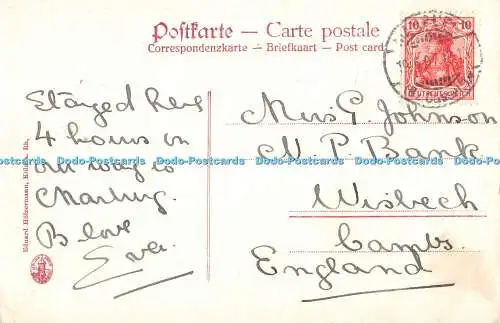 Postkarte – Carte postale
Correspondenzkarte – Briefkaart – Post card
10 10
DEUTSCHES REICH
Stayed here
4 hours on
our way to
Marburg.
B love
Eva.
Miss G. Johnson
N. P. Bank
Wisbech
Cambs.
England
Dodo-Postcards Dodo-Postcards Dodo-Postcards Dodo-Postcards Dodo-Postcards Dodo-Postcards